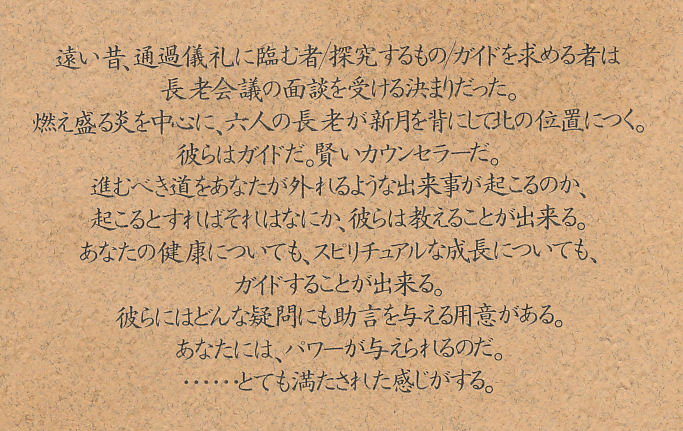 遠い昔、通過儀礼に臨む者/探究するもの/ガイドを求める者は
長老会議の面談を受ける決まりだった。
燃え盛る炎を中心に、六人の長老が新月を背にして北の位置につく。
彼らはガイドだ。賢いカウンセラーだ。
進むべき道をあなたが外れるような出来事が起こるのか、
起こるとすればそれはなにか、彼らは教えることが出来る。
あなたの健康についても、スピリチュアルな成長についても、
ガイドすることが出来る。
彼らにはどんな疑問にも助言を与える用意がある。
あなたには、パワーが与えられるのだ。
……とても満たされた感じがする。